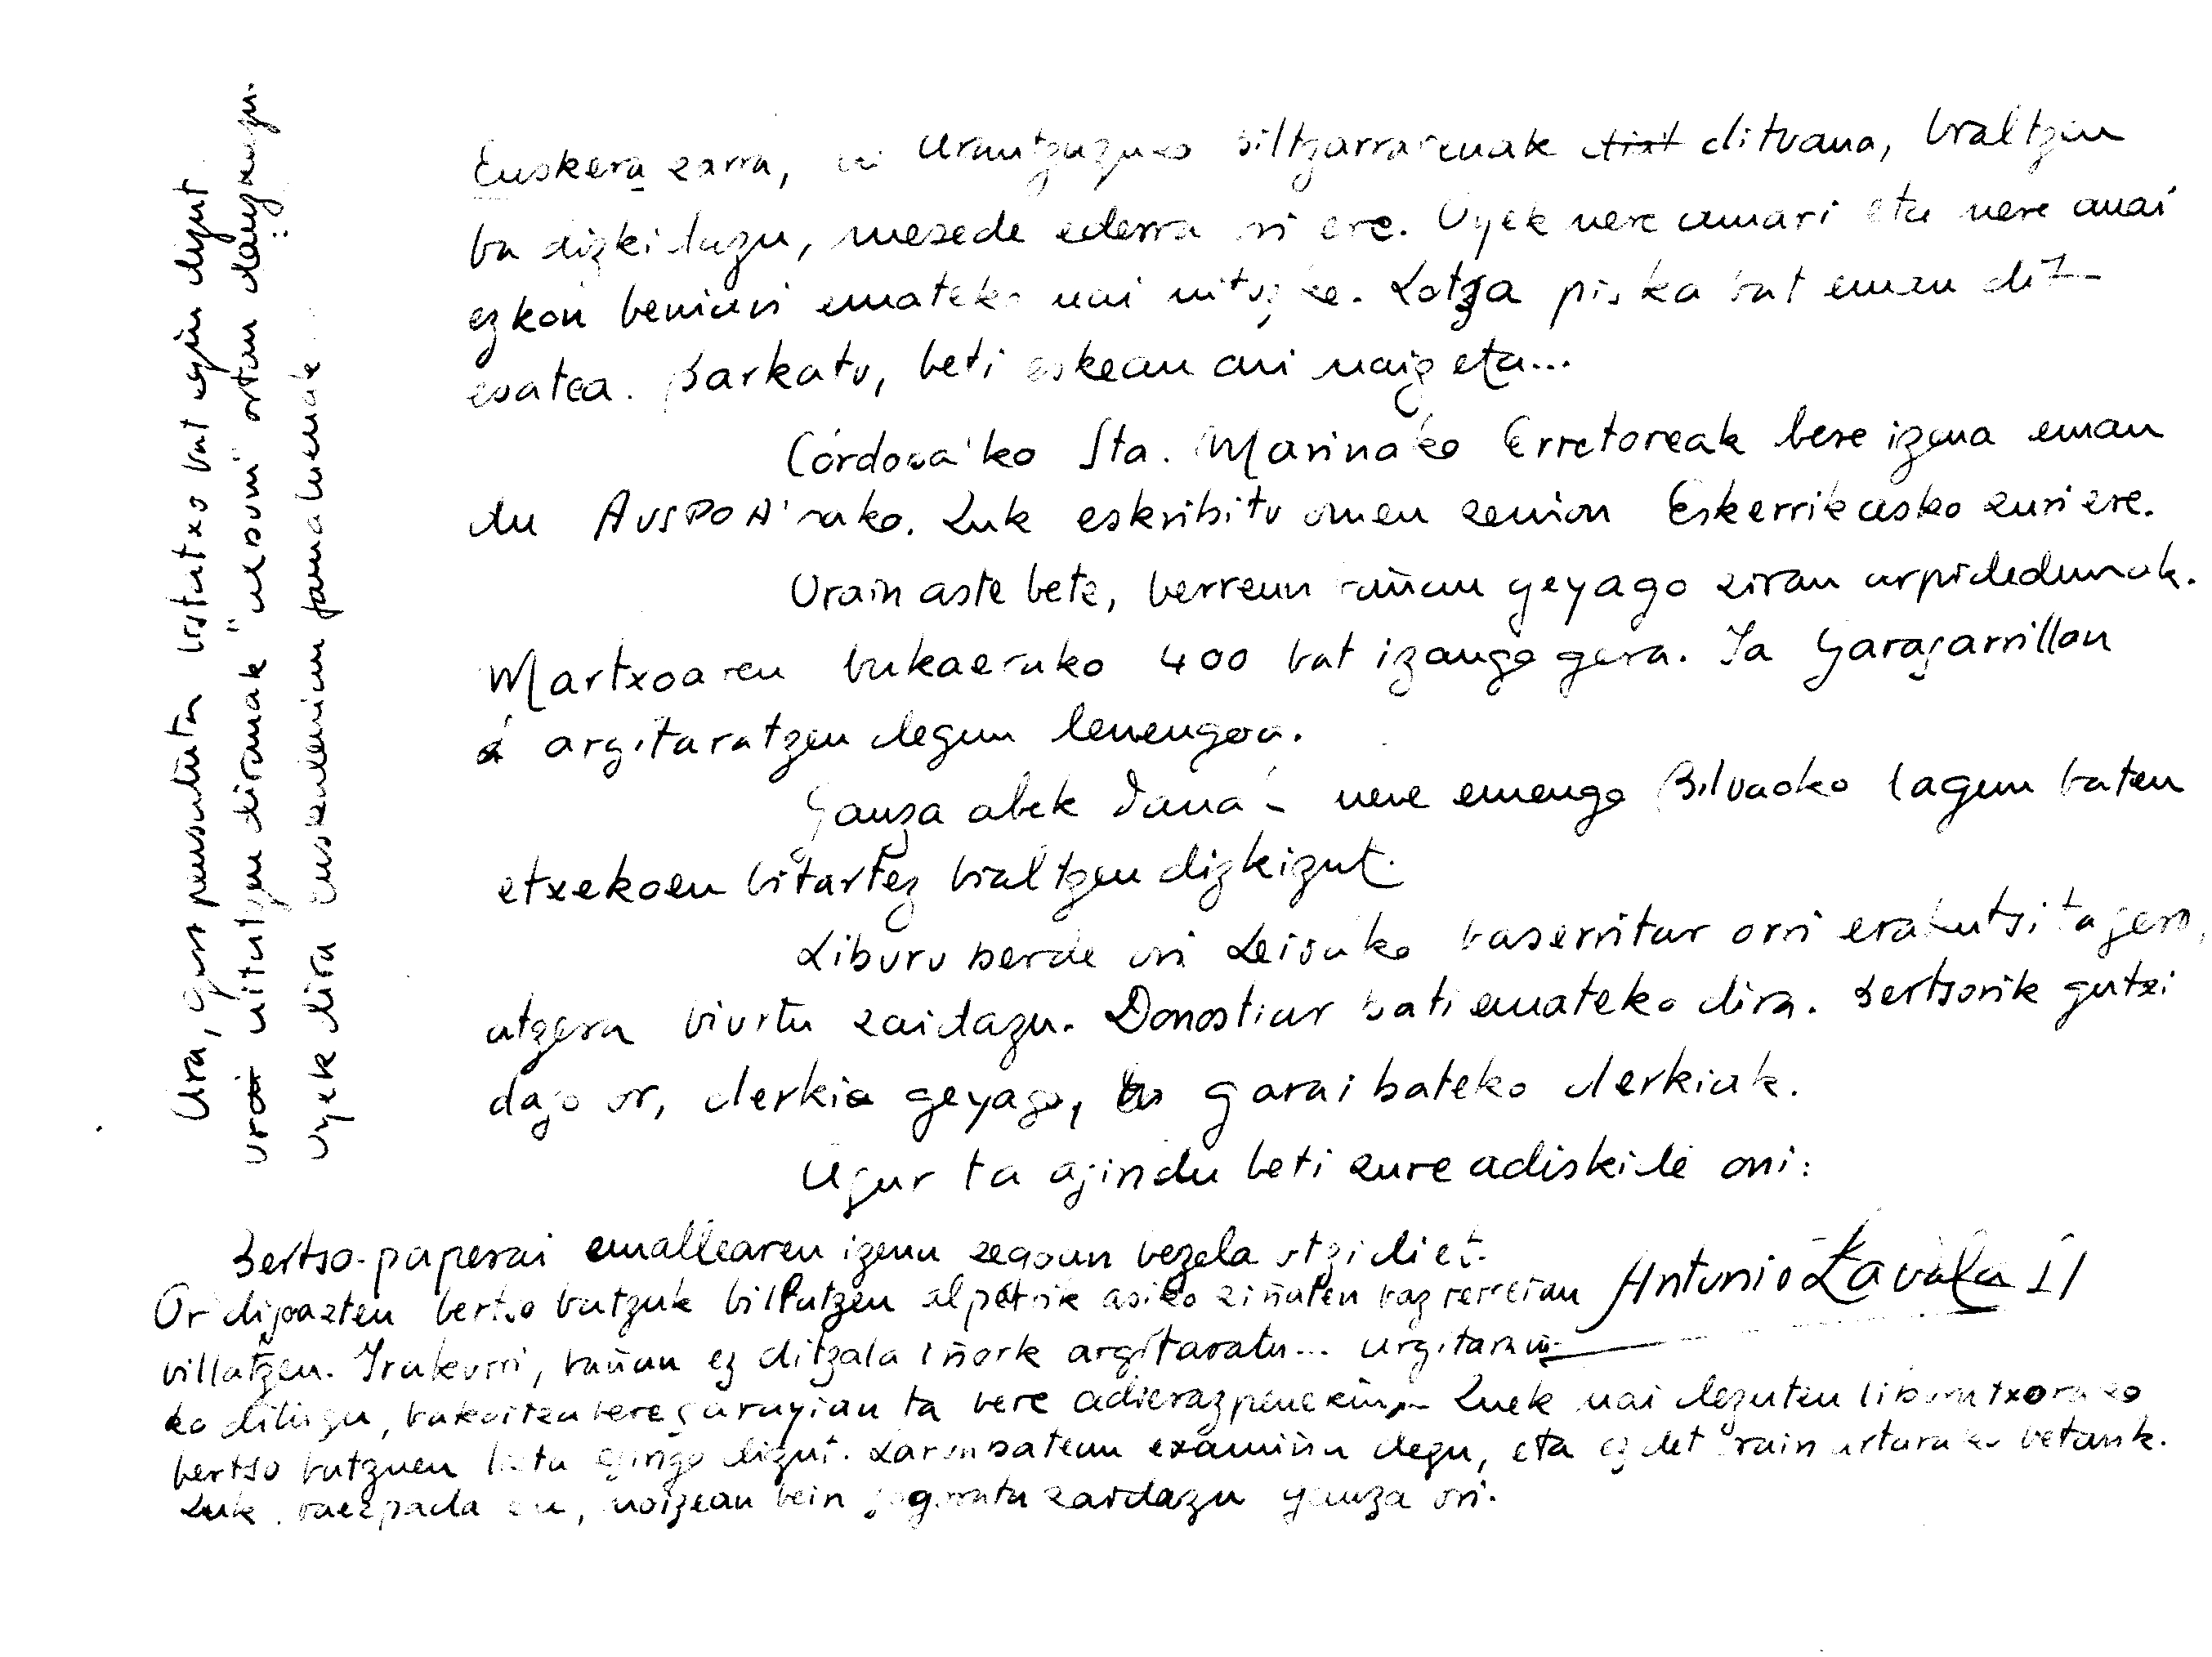 Euskera zarra, Urantzuzuko biltzarrarenak dituana, bialtzen
ba dizkidazu, mesede ederra ori ere. Oyek nere amari eta nere anai
ezkon berriari emateko nai nituzke. Lotza piska bat eman dit
esatea. Barkatu, beti eskean ari naiz eta...
Córdova'ko Sta. Marinako Erretoreak bere izena eman
du AUSPOA'rako. Zuk eskribitu omen zenion Eskerrikasko zuri ere.
Orain aste bete, berreun bañan geyago ziran arpidedunak.
Martxoaren bukaerako 400 bat izango gera. Ia Garagarrillan
argitaratzen degun lenengoa.
Gauza abek danak nere emengo Bilvaoko lagun baten
etxekoen bitartez bialtzen dizkizut.
Liburu berde ori Leizako baserritar orri erakutsi ta gero,
atzera biurtu zaidazu. Donostiar bati emateko dira. Bertsorik gutxi
dago or, clerkia geyago, garai bateko clerkiak.
Agur ta agindu beti zure adiskide oni:
Antonio Zavala SI
Bertso-paperai emallearen izena zegoan bezela utzi diet.
Or dijoazten bertso batzuk billatzen alperrik asiko ziñaten baz rerreian
billatzen. Irakurri, bañan ez ditzala iñork argitaratu... Argitarau-
ko ditugu, bakoitza bere garayian ta bere adierazpenekin. Zuek nai dezuten liburutxorako
bertso batzuen lista egingo dizut. Larunbatean examiña degu, eta ez det orain artarako betarik.
Zuk, baezpada ere, noizean bein gogoratu zaidazu gauza ori.
Ara, gero pensatuta listatxo bat egin dizut
nitutzen diranak "nesoni" ortan dauzkazu.
Oyek dira euskalerrian famatuenak.